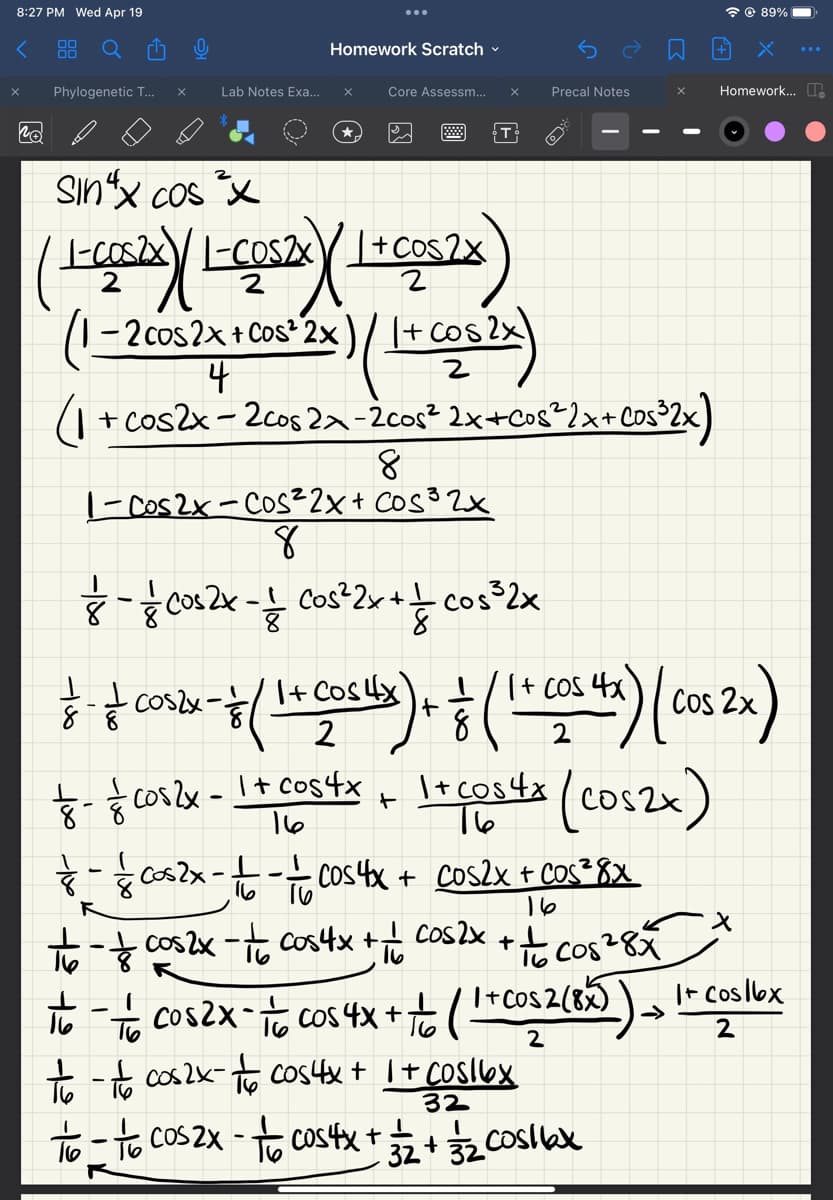 8:27 PM Wed Apr 19 89%
Homework Scratch
Phylogenetic T... Lab Notes Exa... Core Assessm... Precal Notes Homework...
sin⁴x cos²x
((1-cos2x)/2)((1-cos2x)/2)((1+cos2x)/2)
((1-2cos2x+cos²2x)/4)((1+cos2x)/2)
(1+cos2x-2cos2x-2cos²2x+cos²2x+cos³2x)/8
(1-cos2x-cos²2x+cos³2x)/8
1/8 - 1/8 cos2x - 1/8 cos²2x + 1/8 cos³2x
1/8 - 1/8 cos2x - 1/8((1+cos4x)/2) + 1/8((1+cos4x)/2)(cos2x)
1/8 - 1/8 cos2x - (1+cos4x)/16 + (1+cos4x)/16 (cos2x)
1/8 - 1/8 cos2x - 1/16 - 1/16 cos4x + (cos2x+cos²8x)/16
1/16 - 1/8 cos2x - 1/16 cos4x + 1/16 cos2x + 1/16 cos²8x x
1/16 - 1/16 cos2x - 1/16 cos4x + 1/16((1+cos2(8x))/2) → (1+cos16x)/2
1/16 - 1/16 cos2x - 1/16 cos4x + (1+cos16x)/32
1/16 - 1/16 cos2x - 1/16 cos4x + 1/32 + 1/32 cos16x